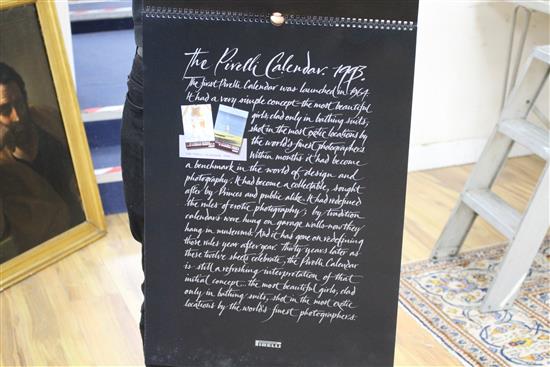 The Pirelli Calendar 1993.
The first Pirelli Calendar was launched in 1964.
It had a very simple concept - the most beautiful
girls, clad only in bathing suits,
shot in the most exotic locations by
the world's finest photographers.
Within months it had become
a benchmark in the world of design and
photography. It had become a collectable, sought
after by Princes and public alike. It had redefined
the rules of erotic photography; by tradition
calendars were hung on garage walls - now they
hang in museums. And it has gone on redefining
those rules year after year. Thirty years later as
these twelve sheets celebrate, the Pirelli Calendar
is still a refreshing interpretation of that
initial concept - the most beautiful girls, clad
only in bathing suits, shot in the most exotic
locations by the world's finest photographers.
PIRELLI